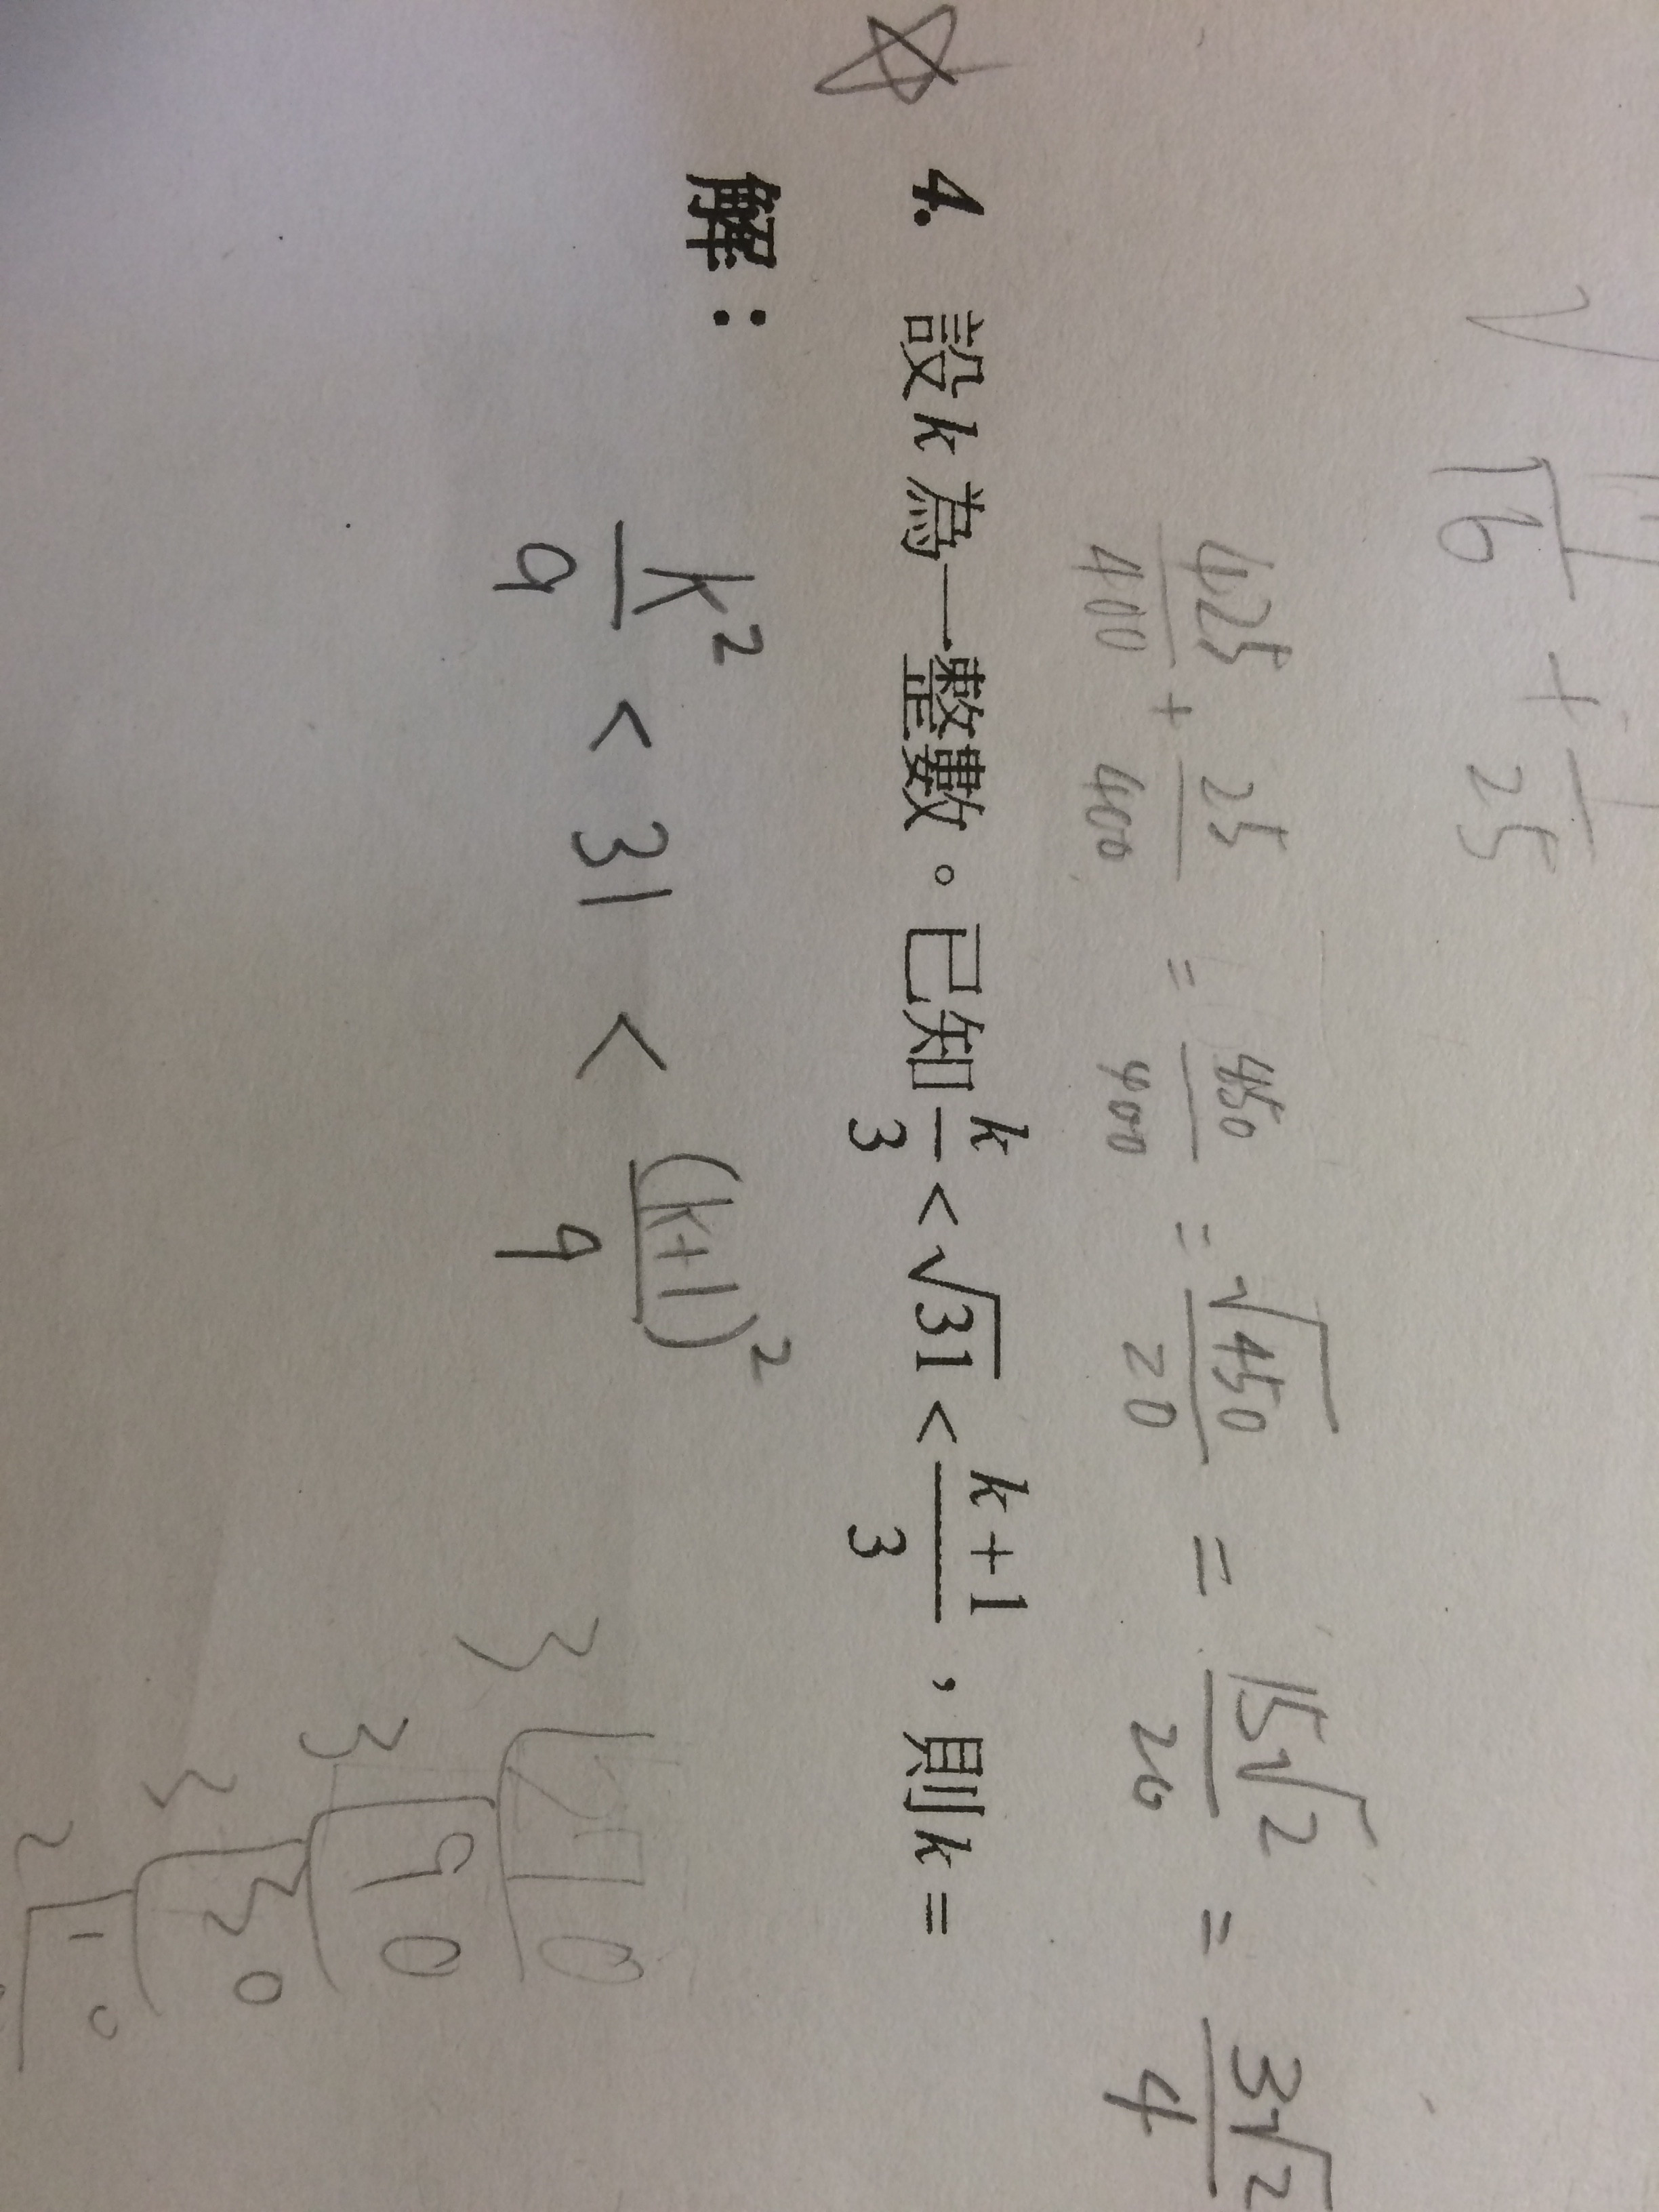 16 + 25
425/400 + 25/400 = 450/400 = √450/20 = 15√2/20 = 3√2/4
4. 設k為一整數。已知 k/3 < √31 < (k+1)/3 , 則k =
解：
k²/9 < 31 < (k+1)²/9
3
3 90
3 30
2 10